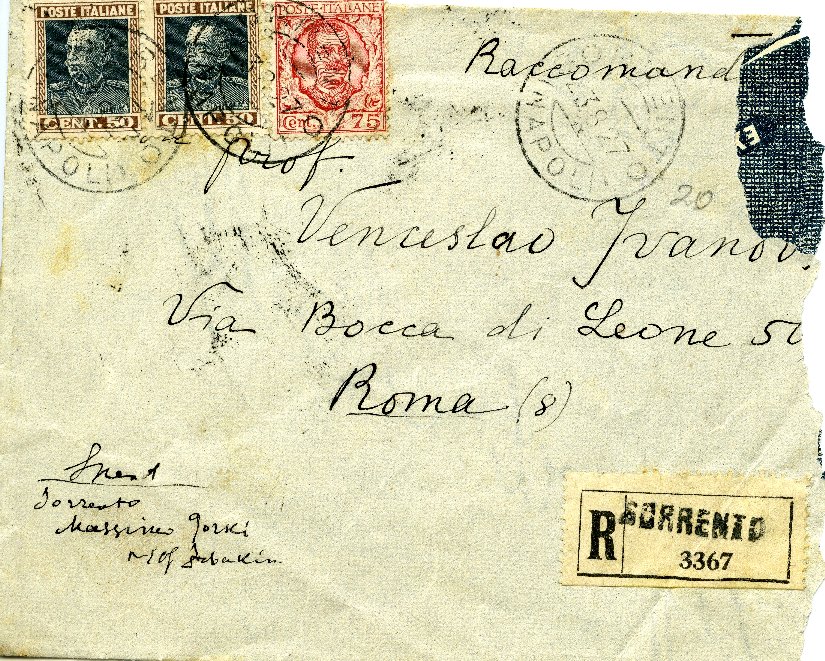 POSTE ITALIANE POSTE ITALIANE POSTE ITALIANE
CENT. 50 CENT. 50 Cent. 75
Raccomand
SORRENTO
23.9.27
NAPOLI
20
prof.
Venceslao Ivanov
Via Bocca di Leone 50
Roma (8)
Sorrento
Massimo Gorki
R SORRENTO
3367